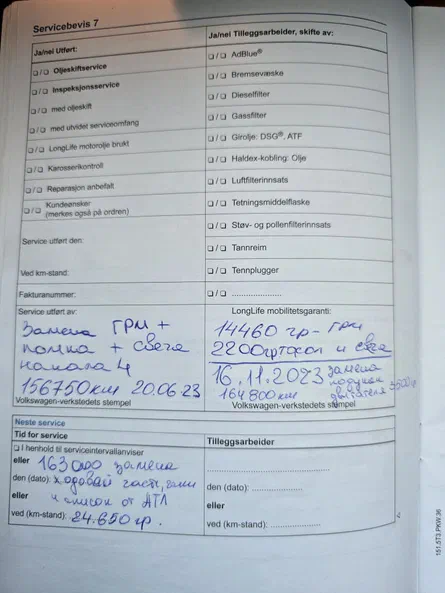 Servicebevis 7
Ja/nei Utført:
❑ / ❑ Oljeskiftservice
❑ / ❑ Inspeksjonsservice
❑ / ❑ med oljeskift
❑ / ❑ med utvidet serviceomfang
❑ / ❑ LongLife motorolje brukt
❑ / ❑ Karosserikontroll
❑ / ❑ Reparasjon anbefalt
❑ / ❑ Kundeønsker
(merkes også på ordren)
Service utført den:
Ved km-stand:
Fakturanummer:
Ja/nei Tilleggsarbeider, skifte av:
❑ / ❑ AdBlue®
❑ / ❑ Bremsevæske
❑ / ❑ Dieselfilter
❑ / ❑ Gassfilter
❑ / ❑ Girolje: DSG®, ATF
❑ / ❑ Haldex-kobling: Olje
❑ / ❑ Luftfilterinnsats
❑ / ❑ Tetningsmiddelflaske
❑ / ❑ Støv- og pollenfilterinnsats
❑ / ❑ Tannreim
❑ / ❑ Tennplugger
❑ / ❑ ....................
Service utført av:
Замена ГРМ +
помпа + свеча
накала 4
156750км 20.06.23
Volkswagen-verkstedets stempel
LongLife mobilitetsgaranti:
14460 гр- ГРМ
2200гр тосол и свеча
16.11.2023 замена
164800км подушек
двигателя
Volkswagen-verkstedets stempel
Neste service
Tid for service
❑ I henhold til serviceintervallanviser
eller 163000 замена
den (dato): ходовой части,
eller и список от АТЛ
ved (km-stand): 24.650 гр.
Tilleggsarbeider
....................
den (dato): ....................
eller
ved (km-stand): ....................
151.5T3.PKW.36